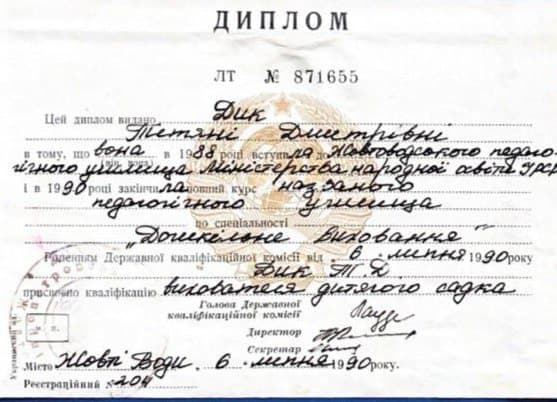 ДИПЛОМ
ЛТ № 871655
Цей диплом видано Дик
Тетяні Дмитрівні
в тому, що вона в 1988 році вступила до Жовтоводського педаго-
(він, вона)
гічного училища Міністерства народної освіти УРСР
і в 1990 році закінчила повний курс названого
педагогічного училища
по спеціальності
„Дошкільне виховання"
Рішенням Державної кваліфікаційної комісії від 6 липня 1990 року
Дик Т. Д
присвоєно кваліфікацію вихователя дитячого садка
Голова Державної
кваліфікаційної комісії
Директор
Секретар
Місто Жовті Води 6 липня 1990 року.
Реєстраційний № 204